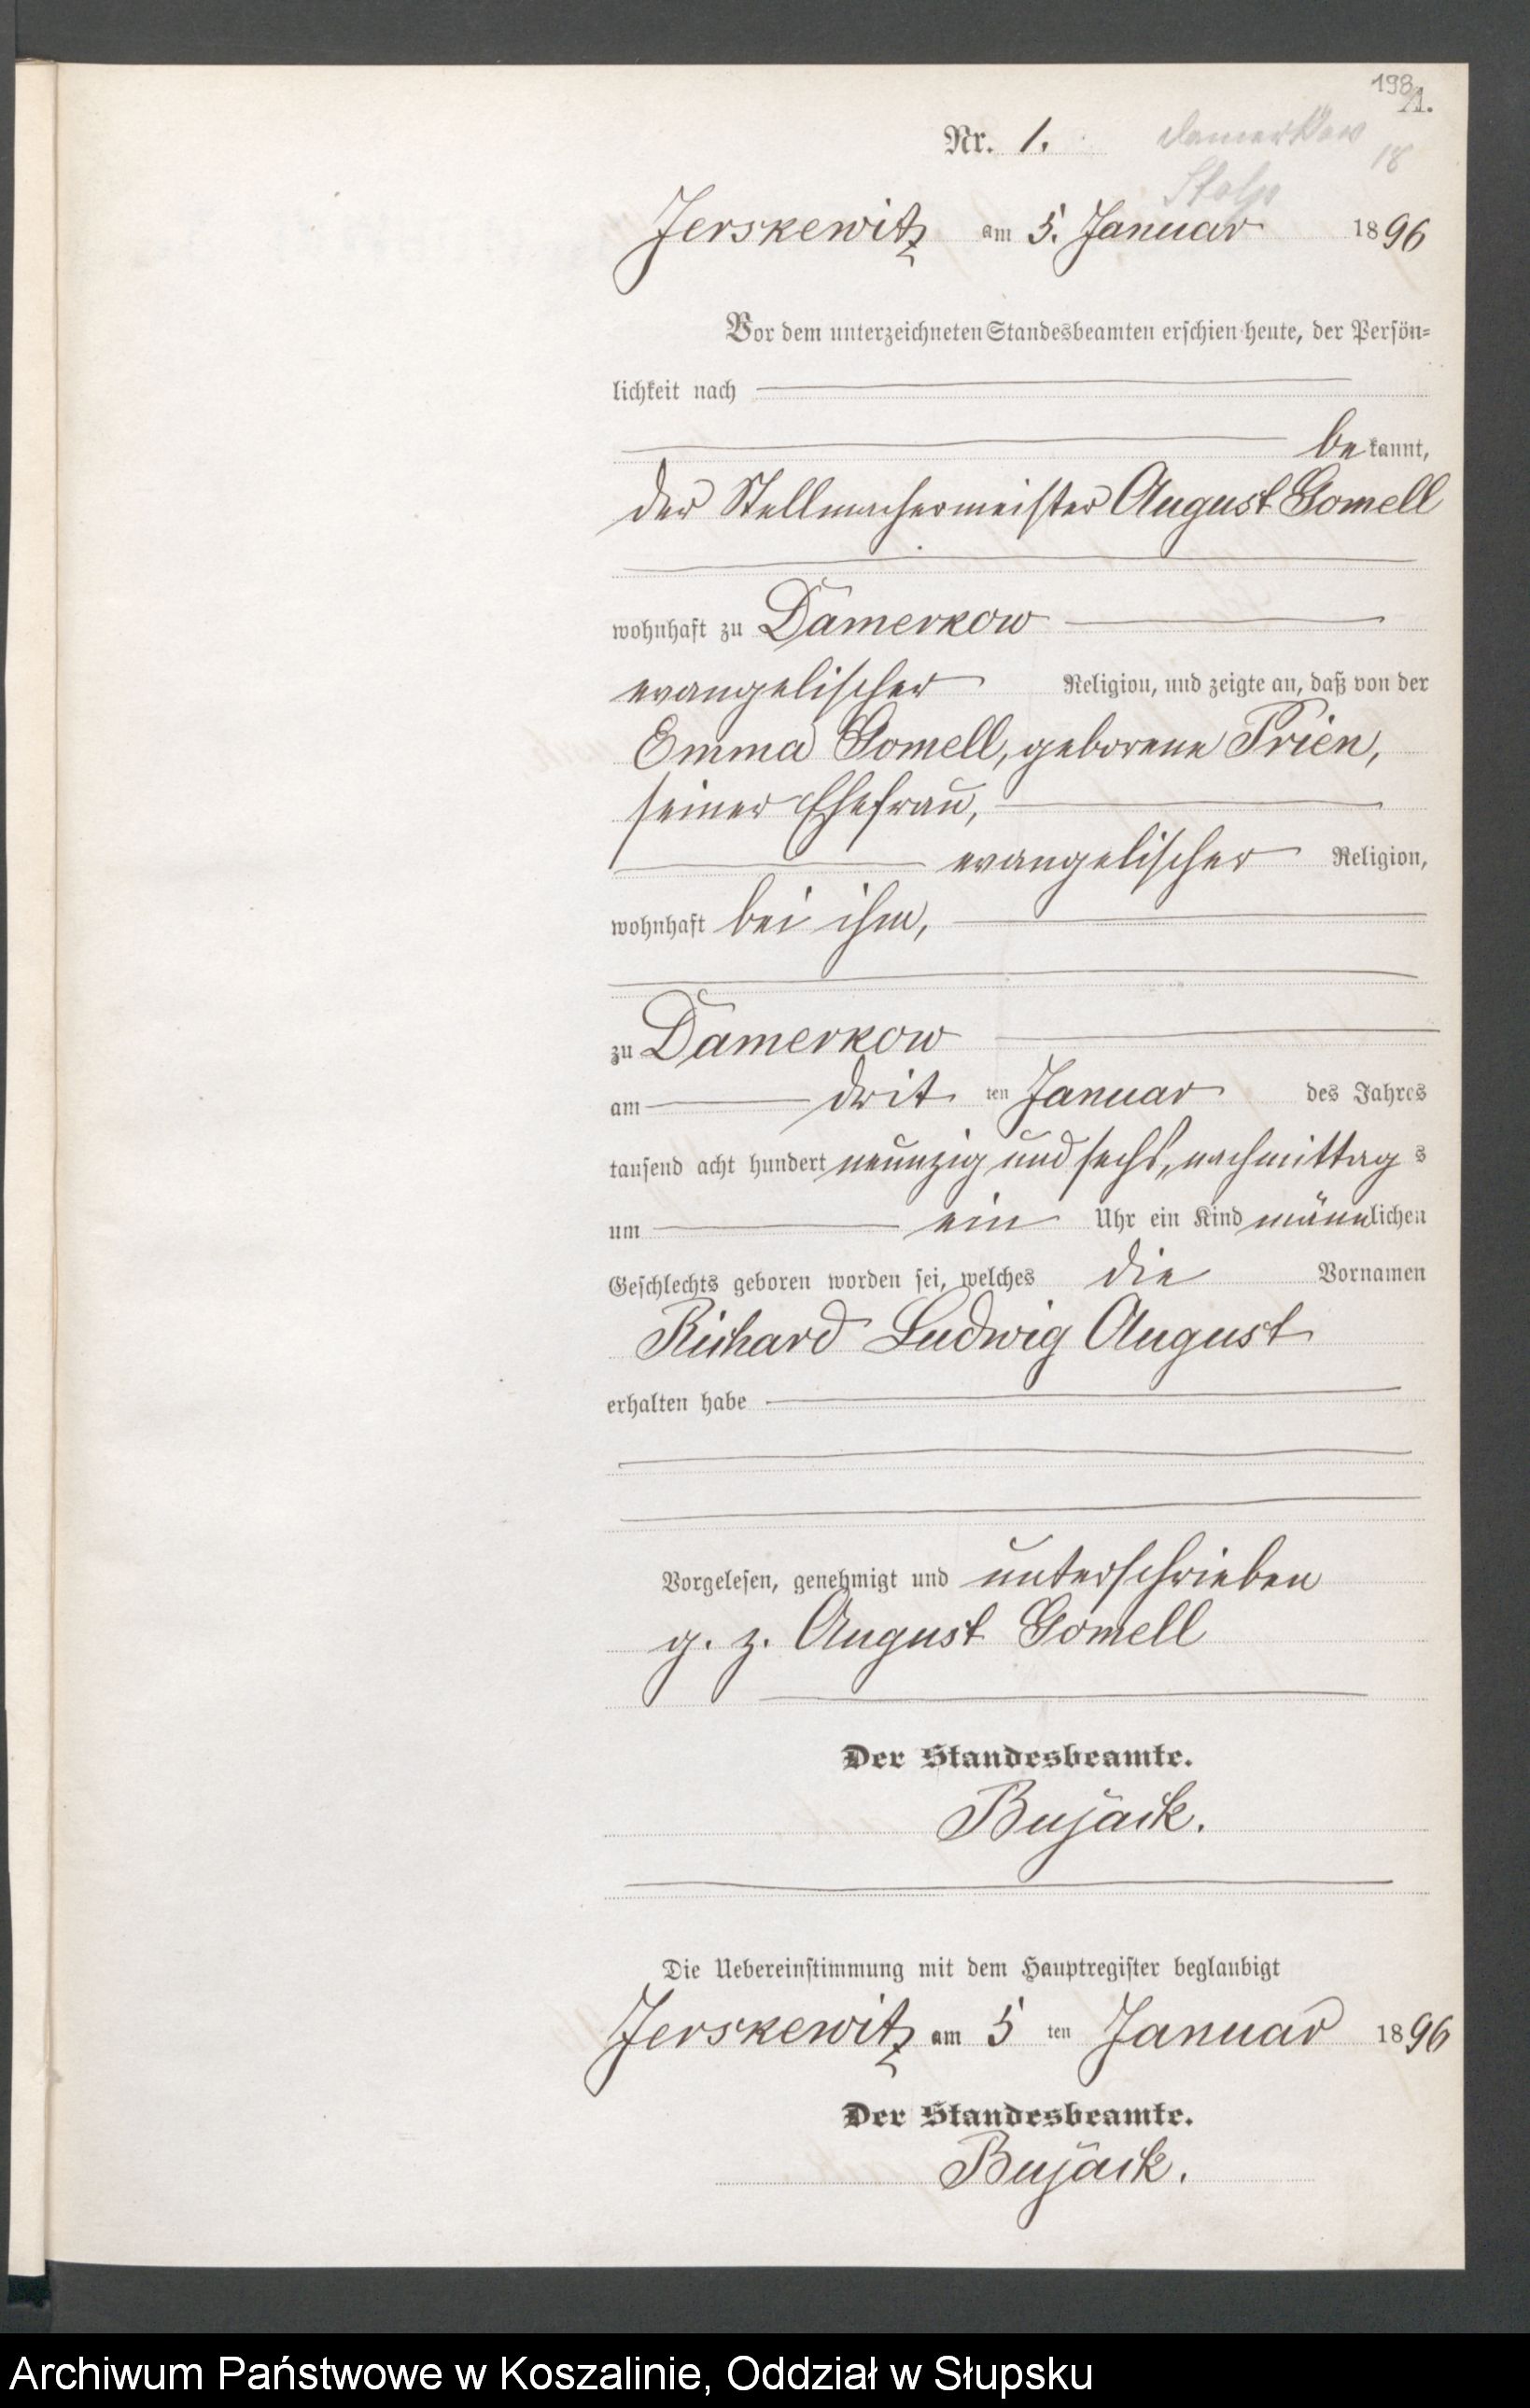 198
A.
Nr. 1.
Damerkow
18
Stolp
Jerskewitz am 5. Januar 1896
Vor dem unterzeichneten Standesbeamten erschien heute, der Persön=
lichkeit nach
bekannt,
der Stellmachermeister August Gomell
wohnhaft zu Damerkow
evangelischer Religion, und zeigte an, daß von der
Emma Gomell, geborene Prien,
seiner Ehefrau,
evangelischer Religion,
wohnhaft bei ihm,
zu Damerkow
am drit ten Januar des Jahres
tausend acht hundert neunzig und sechs, nachmittag s
um ein Uhr ein Kind männlichen
Geschlechts geboren worden sei, welches die Vornamen
Richard Ludwig August
erhalten habe
Vorgelesen, genehmigt und unterschrieben
g. z. August Gomell
Der Standesbeamte.
Bujack.
Die Uebereinstimmung mit dem Hauptregister beglaubigt
Jerskewitz am 5 ten Januar 1896
Der Standesbeamte.
Bujack.
Archiwum Państwowe w Koszalinie, Oddział w Słupsku